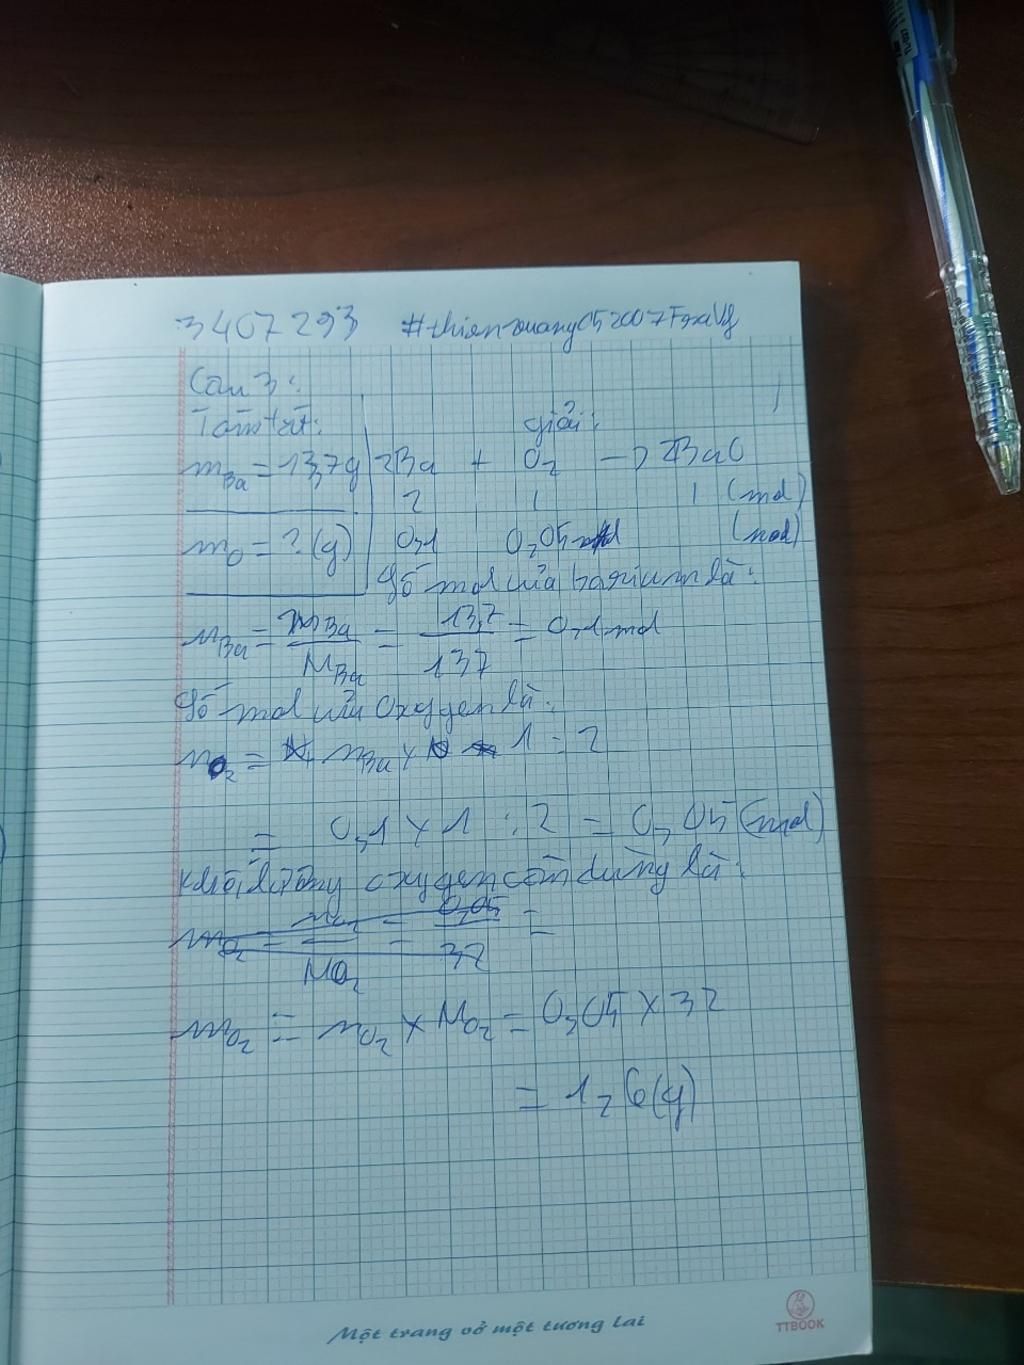 3407293 #thienquang052007
Câu 3:
Tóm tắt: giải:
mBa = 13,7g 2Ba + O2 → 2BaO
2 1 1 (mol)
mO = ? (g) 0,1 0,05 (mol)
Số mol của barium là:
nBa = mBa / MBa = 13,7 / 137 = 0,1 mol
Số mol của oxygen là:
nO2 = nBa × 1 : 2
= 0,1 × 1 : 2 = 0,05 (mol)
Khối lượng oxygen cần dùng là:
mO2 = nO2 / MO2 = 0,05 / 32 =
mO2 = nO2 × MO2 = 0,05 × 32
= 1,6 (g)
Một trang vở một tương lai
TTBOOK